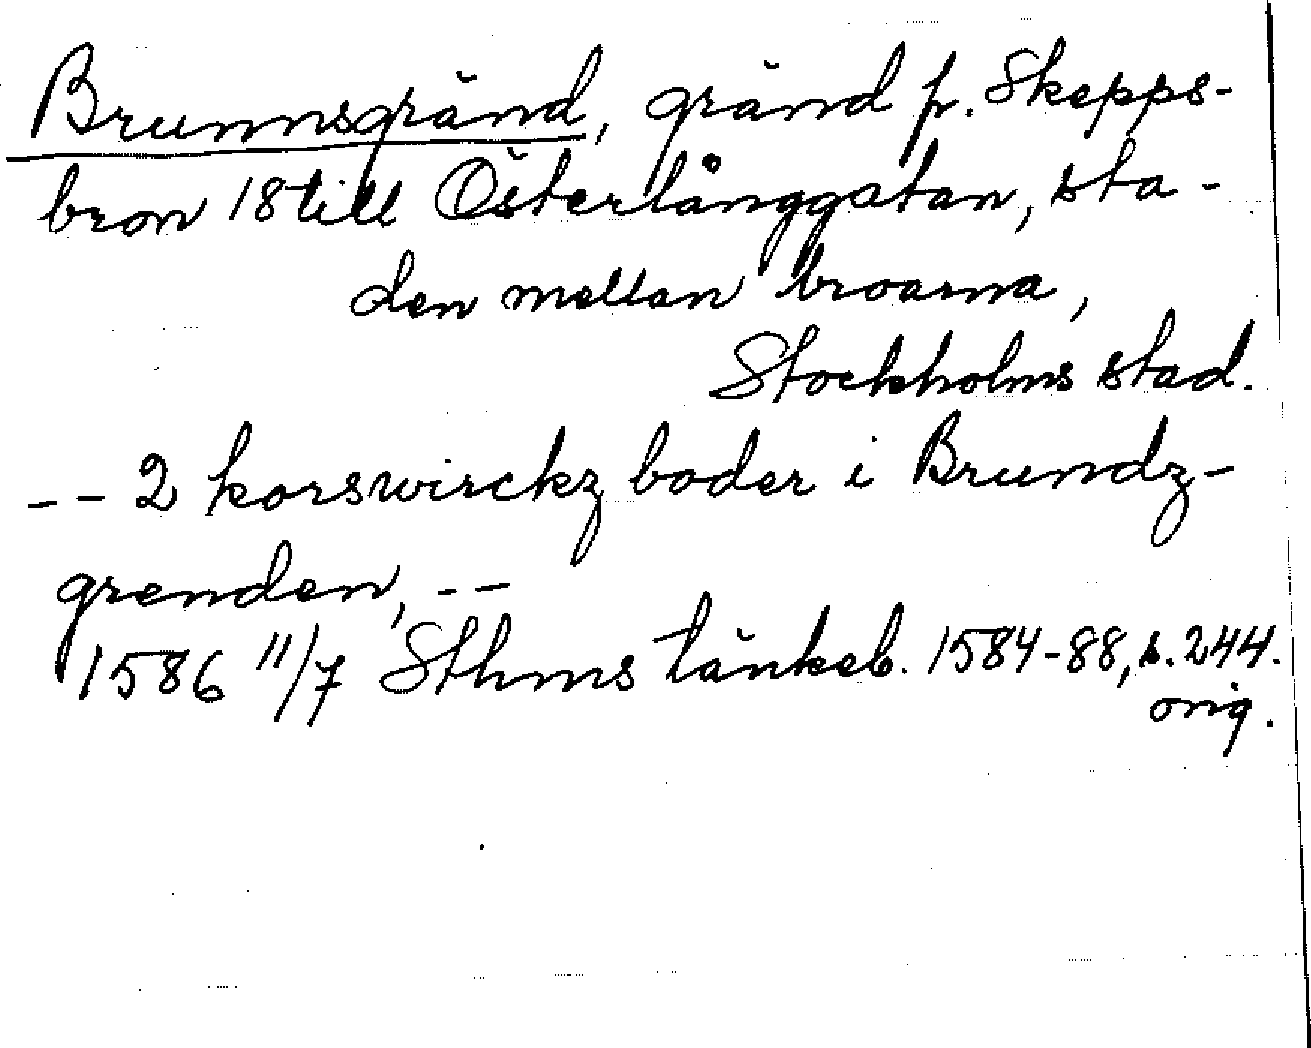 Brunnsgränd, gränd fr. Skepps-
bron 18 till Österlånggatan, sta-
den mellan broarna,
Stockholms stad.
-- 2 korswirckz boder i Brundz-
grenden, --
1586 11/7 Sthms tänkeb. 1584-88, s. 244.
orig.